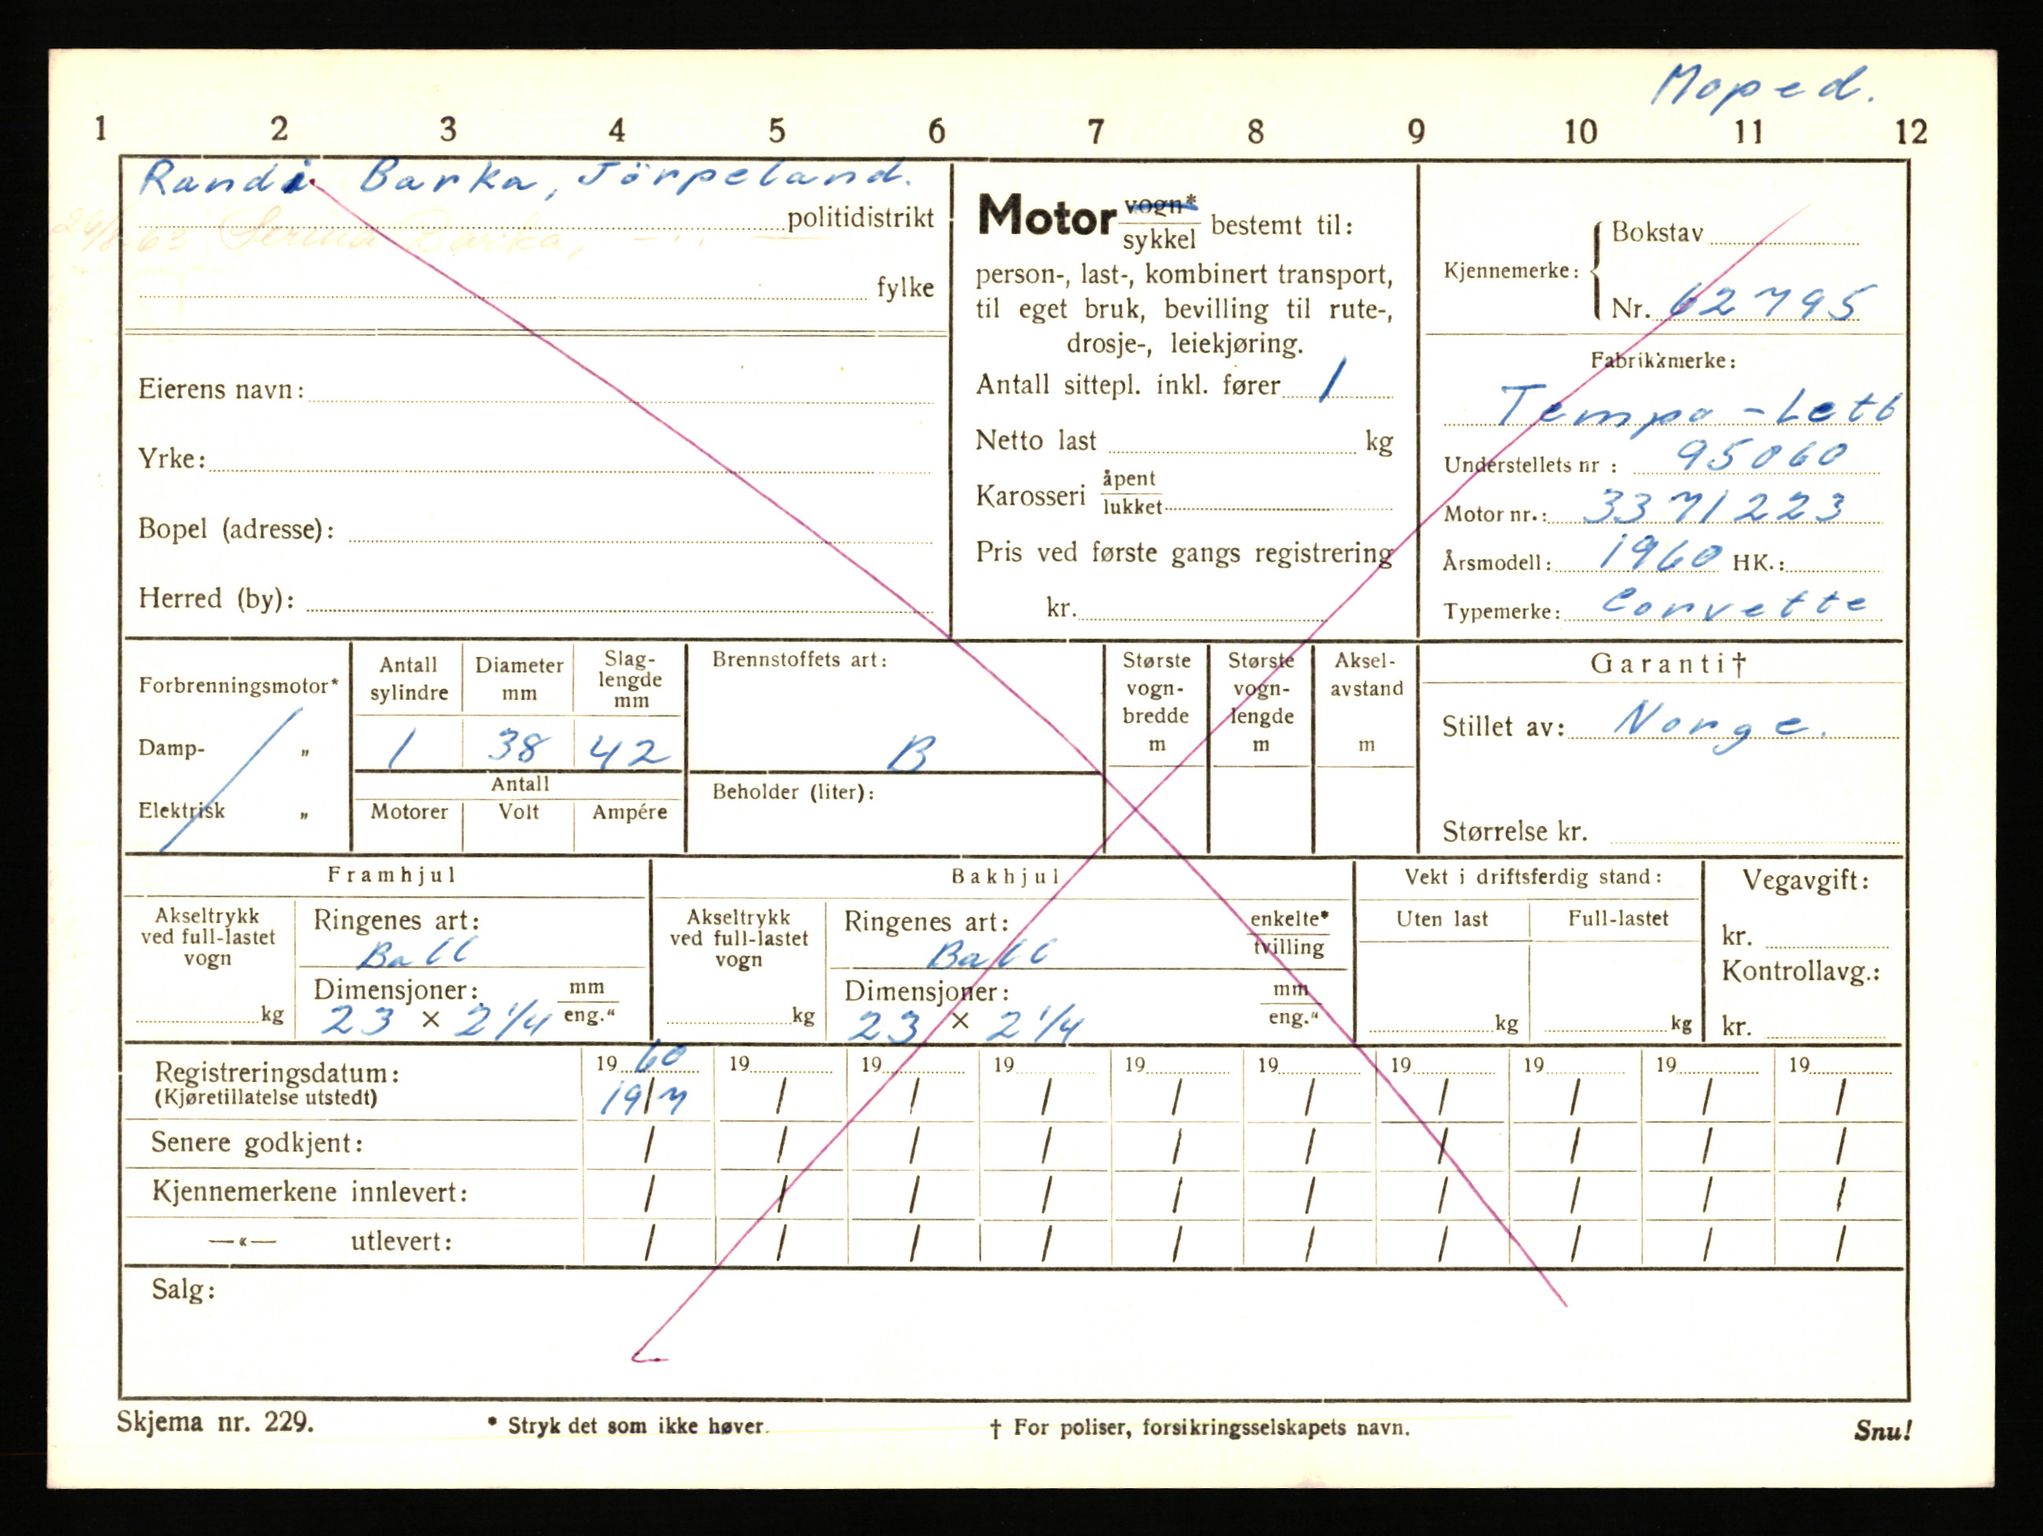 Moped.
1 2 3 4 5 6 7 8 9 10 11 12
Randi Barka, Jörpeland.
politidistrikt
24/8-63 Serina Barka, - " -
fylke
Eierens navn:
Yrke:
Bopel (adresse):
Herred (by):
Motor vogn* / sykkel bestemt til:
person-, last-, kombinert transport,
til eget bruk, bevilling til rute-,
drosje-, leiekjøring.
Antall sittepl. inkl. fører 1
Netto last kg
Karosseri åpent / lukket
Pris ved første gangs registrering
kr.
Kjennemerke: { Bokstav
Nr. 62795
Fabrikkmerke:
Tempo - Lett
Understellets nr : 95060
Motor nr.: 3371223
Årsmodell: 1960 HK.:
Typemerke: Corvette
Forbrenningsmotor*
Damp- "
Elektrisk "
Antall sylindre
Diameter mm
Slag-lengde mm
1 38 42
Antall
Motorer Volt Ampére
Brennstoffets art:
B
Beholder (liter):
Største vogn-bredde m
Største vogn-lengde m
Aksel-avstand m
Garanti†
Stillet av: Norge.
Størrelse kr.
Framhjul
Akseltrykk ved full-lastet vogn
kg
Ringenes art:
Ball
Dimensjoner: mm / eng."
23 × 2 1/4
Bakhjul
Akseltrykk ved full-lastet vogn
kg
Ringenes art: enkelte* / tvilling
Ball
Dimensjoner: mm / eng."
23 × 2 1/4
Vekt i driftsferdig stand:
Uten last Full-lastet
kg kg
Vegavgift:
kr.
Kontrollavg.:
kr.
Registreringsdatum: 19 60 19 19 19 19 19 19 19 19 19
(Kjøretillatelse utstedt) 19/7 / / / / / / / / /
Senere godkjent: / / / / / / / / / /
Kjennemerkene innlevert: / / / / / / / / / /
—«— utlevert: / / / / / / / / / /
Salg:
Skjema nr. 229. * Stryk det som ikke høver. † For poliser, forsikringsselskapets navn. Snu!